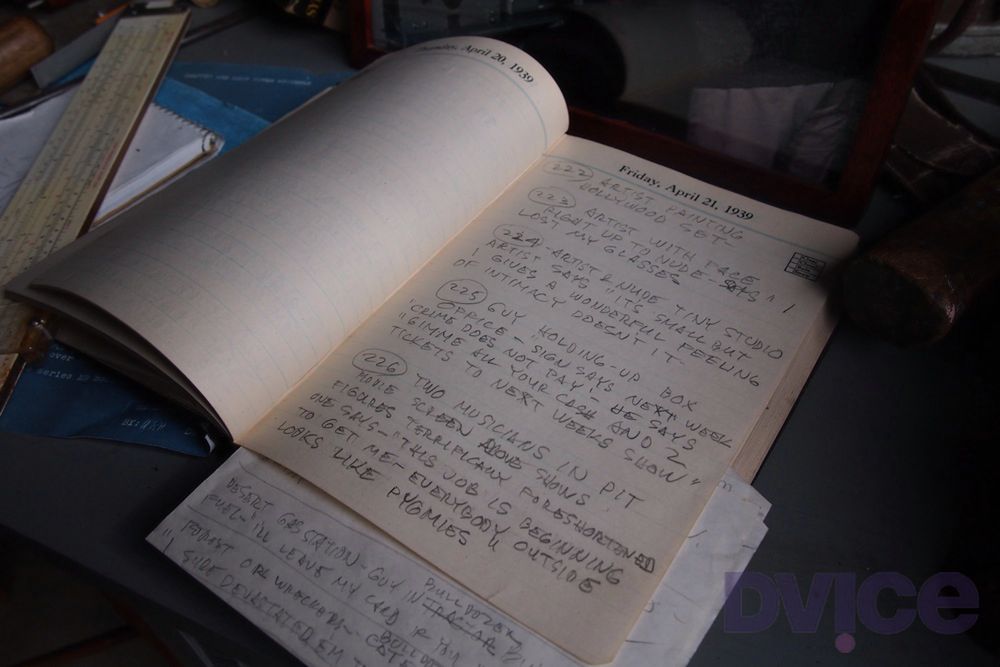 Thursday, April 20, 1939
Friday, April 21, 1939
222 ARTIST PAINTING
HOLLYWOOD GET-
223 ARTIST WITH FACE
RIGHT UP TO NUDE - SAYS "I
LOST MY GLASSES
224 - ARTIST & NUDE TINY STUDIO
ARTIST SAYS "IT'S SMALL BUT
IT GIVES A WONDERFUL FEELING
OF INTIMACY DOESN'T IT -
225 GUY HOLDING-UP BOX
OFFICE - SIGN SAYS NEXT WEEK
"CRIME DOES NOT PAY" - HE SAYS
"GIMME ALL YOUR CASH AND 2
TICKETS TO NEXT WEEKS SHOW"
226 TWO MUSICIANS IN PIT
MOVIE SCREEN ABOVE SHOWS
FIGURES TERRIFICALLY FORESHORTENED
ONE SAYS - "THIS JOB IS BEGINNING
TO GET ME - EVERYBODY OUTSIDE
LOOKS LIKE PYGMIES"
DESERT GAS STATION - GUY IN BULLDOZER
FUEL - I'LL LEAVE MY CARD
FOREST
SIDE DEVASTATED EM
over
series
DVICE